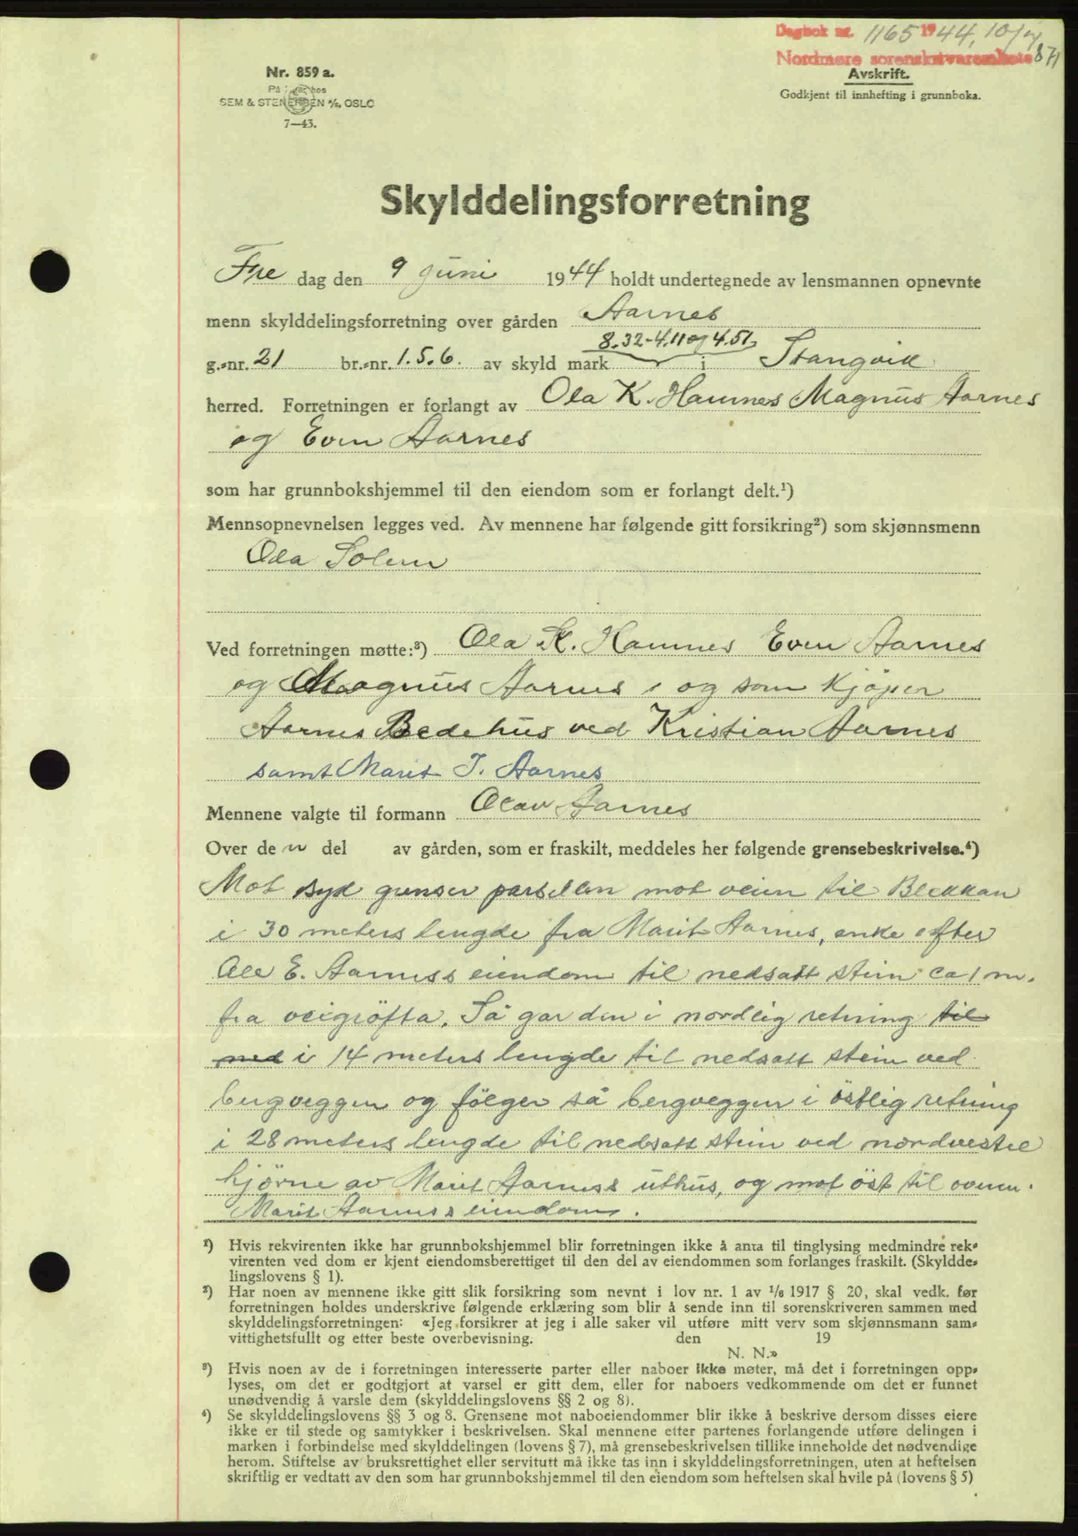 Dagbok nr. 1165 1944, 10/7
Nordmøre sorenskriverembete 871
Nr. 859 a.
På lager hos
SEM & STENERSEN A/S, OSLO
7—43.
Avskrift.
Godkjent til innhefting i grunnboka.
Skylddelingsforretning
Fre dag den 9 juni 1944 holdt undertegnede av lensmannen opnevnte
menn skylddelingsforretning over gården Aarnes
8.32-4.11 og 4.51
g.-nr. 21 br.-nr. 1.5.6. av skyld mark i Stangvik
herred. Forretningen er forlangt av Ola K. Hamnes Magnus Aarnes
og Even Aarnes
som har grunnbokshjemmel til den eiendom som er forlangt delt.¹)
Mennsopnevnelsen legges ved. Av mennene har følgende gitt forsikring²) som skjønnsmenn
Ola Solem
Ved forretningen møtte:³) Ola K. Hamnes Even Aarnes
og Magnus Aarnes, og som kjöper
Aarnes Bedehus ved Kristian Aarnes
samt Marit J. Aarnes
Mennene valgte til formann Olav Aarnes
Over de n del av gården, som er fraskilt, meddeles her følgende grensebeskrivelse.⁴)
Mot syd grenser parsellen mot veien til Blekkan
i 30 meters lengde fra Marit Aarnes, enke efter
Ole E. Aarnes's eiendom til nedsatt stein ca 1 m.
fra veigröfta. Så går den i nordlig retning til
med i 14 meters lengde til nedsatt stein ved
bergveggen og fölger så bergveggen i östlig retning
i 28 meters lengde til nedsatt stein ved nordvestre
hjörne av Marit Aarnes's uthus, og mot öst til ovenn.
Marit Aarnes's eiendom.
¹) Hvis rekvirenten ikke har grunnbokshjemmel blir forretningen ikke å anta til tinglysing medmindre rek-
virenten ved dom er kjent eiendomsberettiget til den del av eiendommen som forlanges fraskilt. (Skyldde-
lingslovens § 1).
²) Har noen av mennene ikke gitt slik forsikring som nevnt i lov nr. 1 av 1/6 1917 § 20, skal vedk. før
forretningen holdes underskrive følgende erklæring som blir å sende inn til sorenskriveren sammen med
skylddelingsforretningen: «Jeg forsikrer at jeg i alle saker vil utføre mitt verv som skjønnsmann sam-
vittighetsfullt og etter beste overbevisning. den 19
N. N.»
³) Hvis noen av de i forretningen interesserte parter eller naboer ikke møter, må det i forretningen opp-
lyses, om det er godtgjort at varsel er gitt dem, eller for naboers vedkommende om det er funnet
unødvendig å varsle dem (skylddelingslovens §§ 2 og 8).
⁴) Se skylddelingslovens §§ 3 og 8. Grensene mot naboeiendommer blir ikke å beskrive dersom disses eiere
ikke er til stede og samtykker i beskrivelsen. Skal mennene etter partenes forlangende utføre delingen i
marken i forbindelse med skylddelingen (lovens § 7), må grensebeskrivelsen tillike inneholde det nødvendige
herom. Stiftelse av bruksrettighet eller servitutt må ikke tas inn i skylddelingsforretningen, uten at heftelsen
skriftlig er vedtatt av den som har grunnbokshjemmel til den eiendom som heftelsen skal hvile på (lovens § 5)